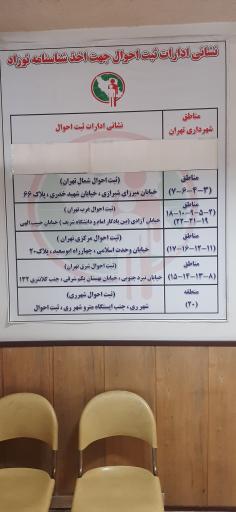 نشانی ادارات ثبت احوال جهت اخذ شناسنامه نوزاد
مناطق
شهرداری تهران
نشانی ادارات ثبت احوال
مناطق
(۳-۴-۶-۷)
(ثبت احوال شمال تهران)
خیابان میرزای شیرازی ، خیابان شهید خدری ، پلاک ۶۶
مناطق
(۲-۵-۹-۱۰-۱۸
۱۹-۲۱-۲۲)
(ثبت احوال غرب تهران)
خیابان آزادی (بین یادگار امام و دانشگاه شریف) خیابان حبیب الهی
مناطق
(۱۱-۱۲-۱۶-۱۷)
(ثبت احوال مرکزی تهران)
خیابان وحدت اسلامی ، چهارراه ابوسعید ، پلاک۲۰
مناطق
(۸-۱۳-۱۴-۱۵)
(ثبت احوال شرق تهران)
خیابان نبرد جنوبی ، خیابان بهستان یکم شرقی ، جنب کلانتری ۱۳۲
منطقه
(۲۰)
(ثبت احوال شهرری)
شهر ری ، جنب ایستگاه مترو شهر ری ، ثبت احوال